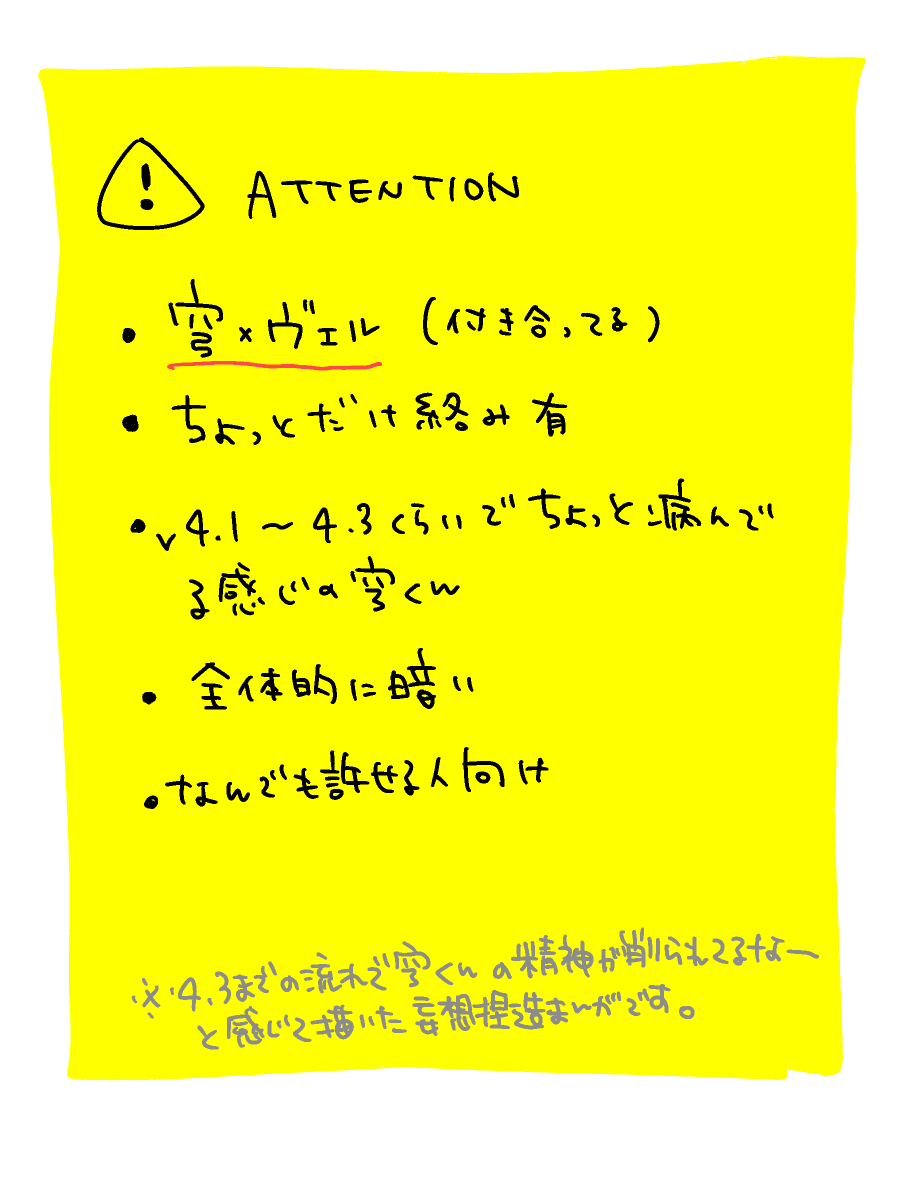 ! ATTENTION
• 穹×ヴェル (付き合ってる)
• ちょっとだけ絡み有
• v4.1～4.3くらいでちょっと病んで
る感じの穹くん
• 全体的に暗い
• なんでも許せる人向け
※4.3までの流れで穹くんの精神が削られてるなー
と感じて描いた妄想捏造まんがです。